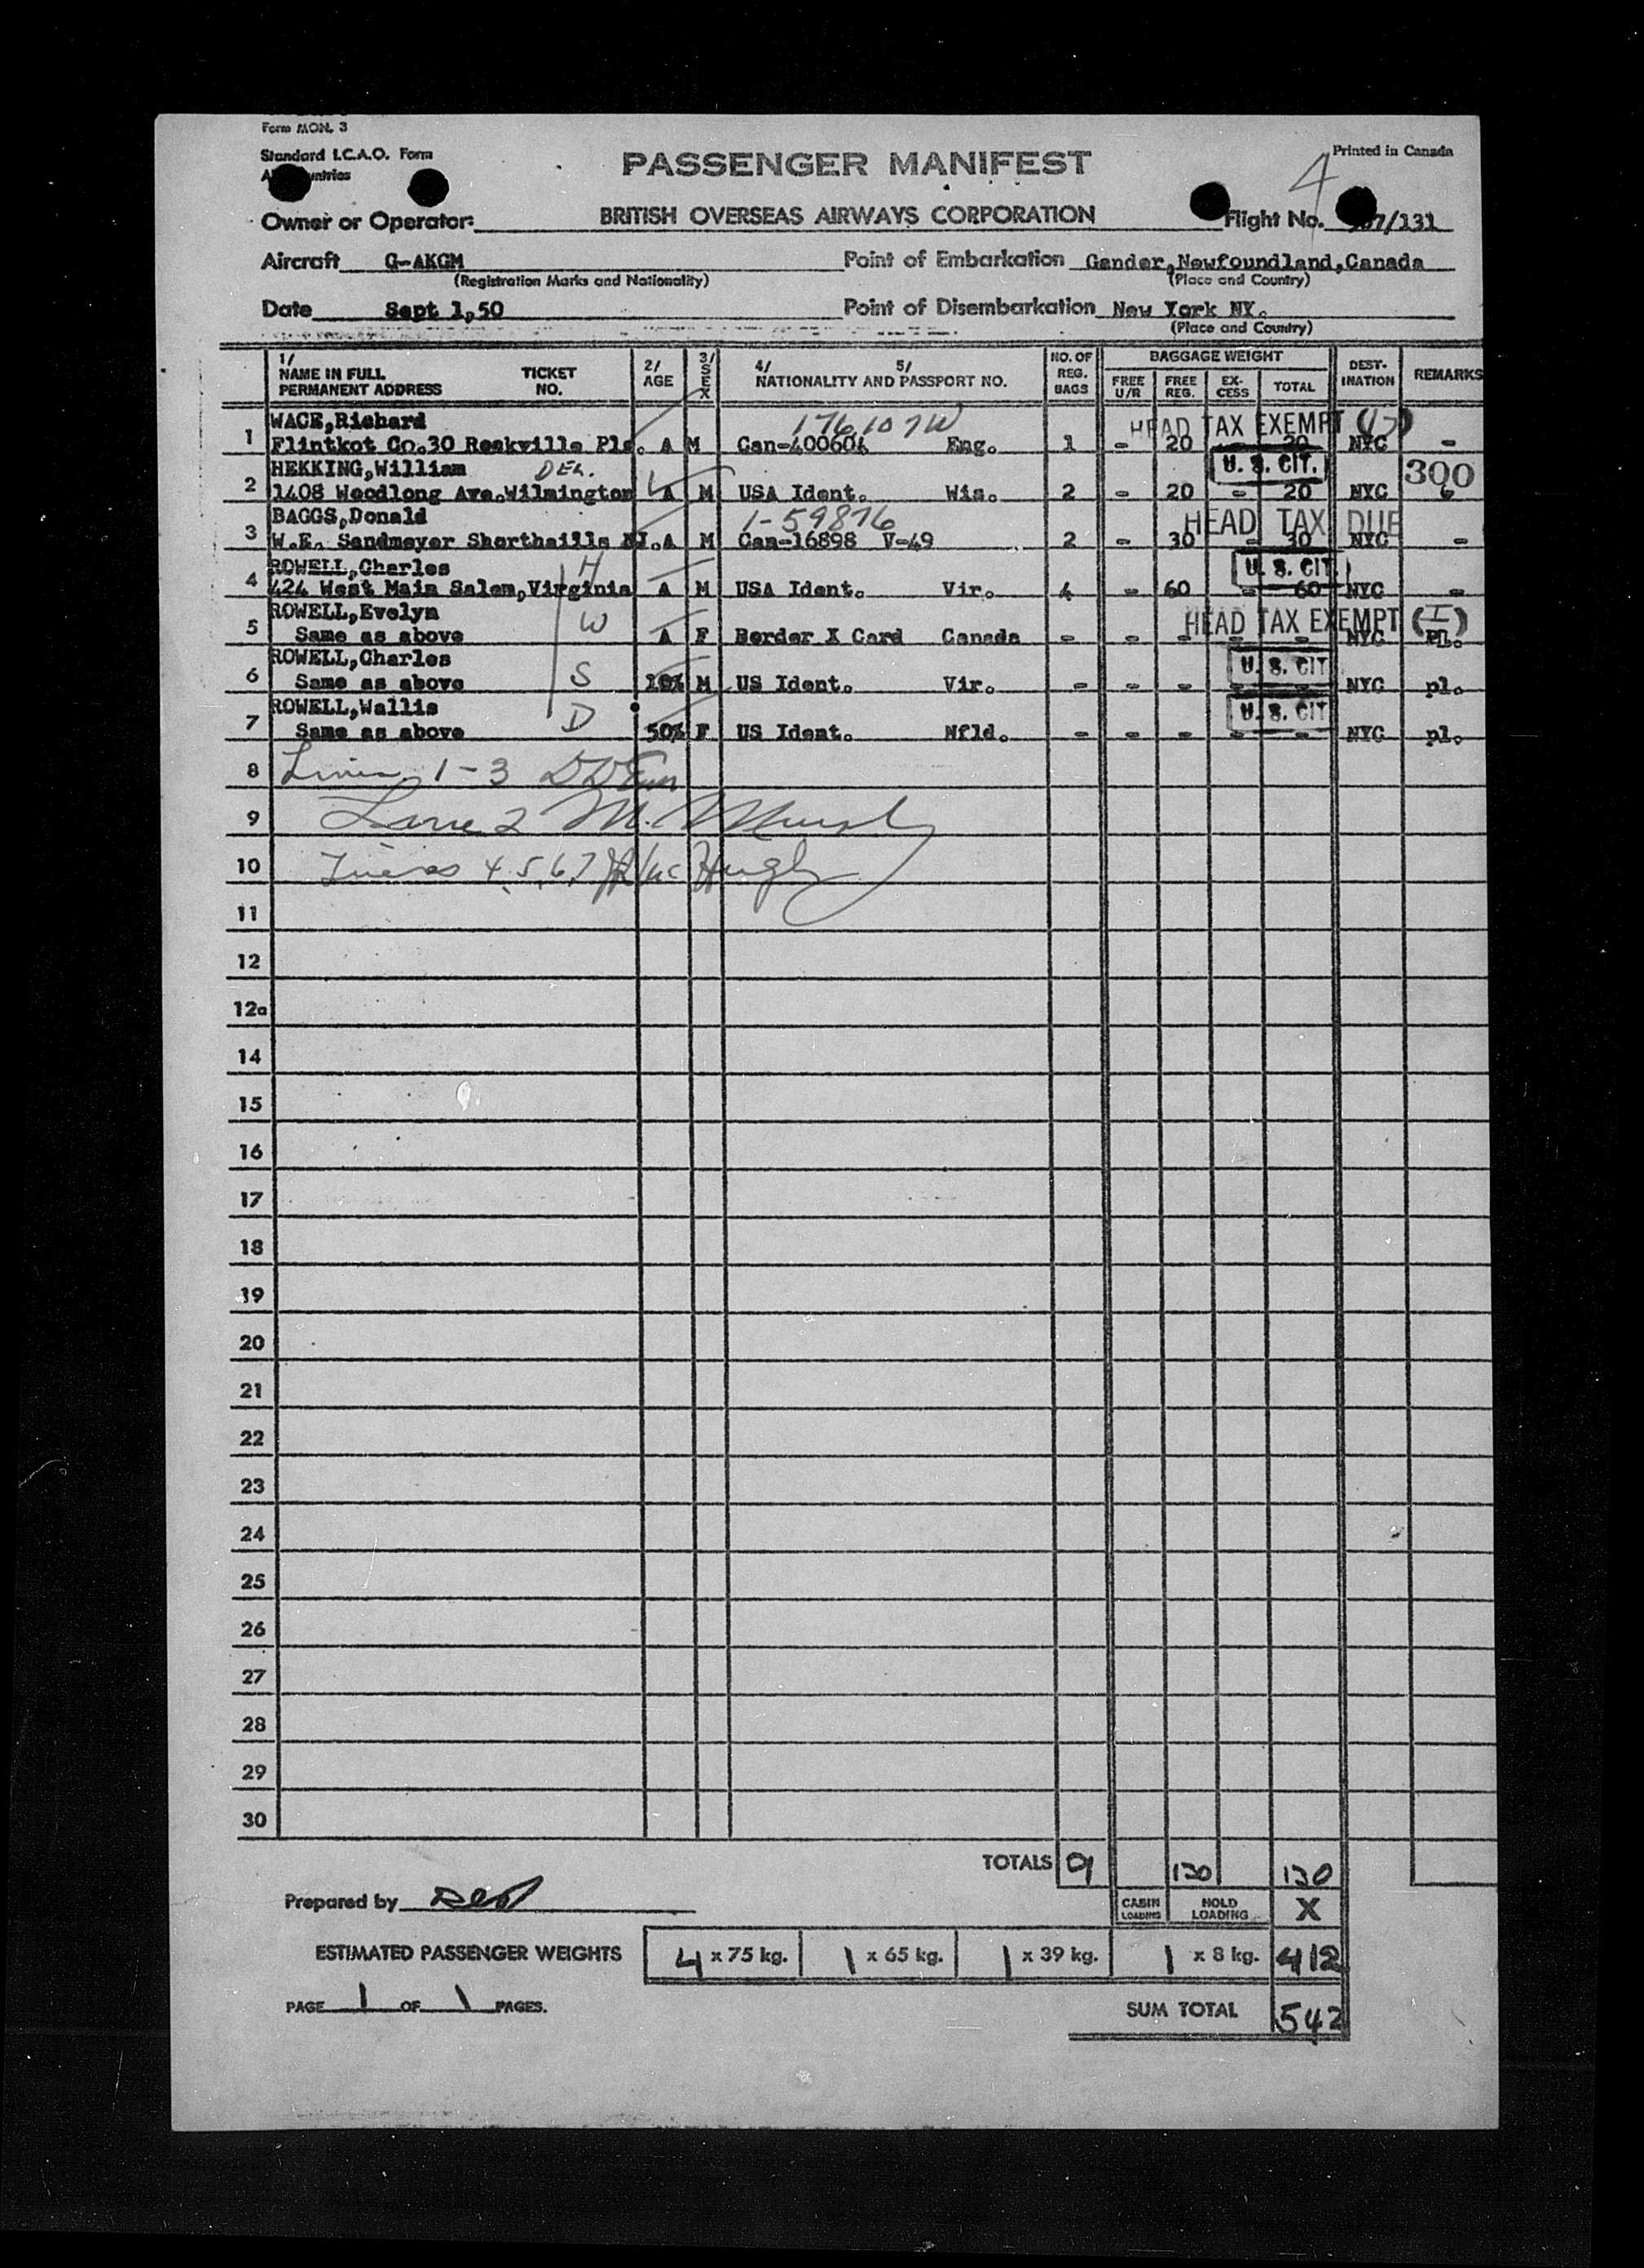 Form MON. 3
Standard I.C.A.O. Form
Printed in Canada
PASSENGER MANIFEST
4
Owner or Operator: BRITISH OVERSEAS AIRWAYS CORPORATION Flight No. 7/131
Aircraft G-AKGM Point of Embarkation Gander,Newfoundland,Canada
(Registration Marks and Nationality) (Place and Country)
Date Sept 1,50 Point of Disembarkation New York NY.
(Place and Country)
1/ NAME IN FULL PERMANENT ADDRESS TICKET NO. 2/ AGE 3/ SEX 4/ 5/ NATIONALITY AND PASSPORT NO. NO. OF REG. BAGS BAGGAGE WEIGHT FREE U/R FREE REG. EX-CESS TOTAL DEST-INATION REMARKS
WACE,Richard 176107W HEAD TAX EXEMPT
1 Flintkot Co.30 Rockville Plz. A M Can-400604 Eng. 1 - 20 - 20 NYC -
HEKKING,William DEL. U. S. CIT. 300
2 1408 Woodlong Ave.Wilmington A M USA Ident. Wis. 2 - 20 - 20 NYC
BAGGS,Donald 1-59876 HEAD TAX DUE
3 W.E. Sandmeyer Shorthaills NJ.A M Can-16898 V-49 2 - 30 - 30 NYC -
ROWELL,Charles H U. S. CIT.
4 424 West Main Salem,Virginia A M USA Ident. Vir. 4 - 60 - 60 NYC -
ROWELL,Evelyn W HEAD TAX EXEMPT (I)
5 Same as above A F Border X Card Canada - - - - - NYC pl.
ROWELL,Charles S U. S. CIT
6 Same as above 10% M US Ident. Vir. - - - - - NYC pl.
ROWELL,Wallis D U. S. CIT
7 Same as above 50% F US Ident. Nfld. - - - - - NYC pl.
8 Lines 1-3
9 Line 2 M. Murphy
10 Lines 4,5,6,7
11
12
12a
14
15
16
17
18
19
20
21
22
23
24
25
26
27
28
29
30
TOTALS 9 130 130
Prepared by CABIN LOADING HOLD LOADING X
ESTIMATED PASSENGER WEIGHTS 4 x 75 kg. 1 x 65 kg. 1 x 39 kg. 1 x 8 kg. 412
PAGE 1 OF 1 PAGES. SUM TOTAL 542